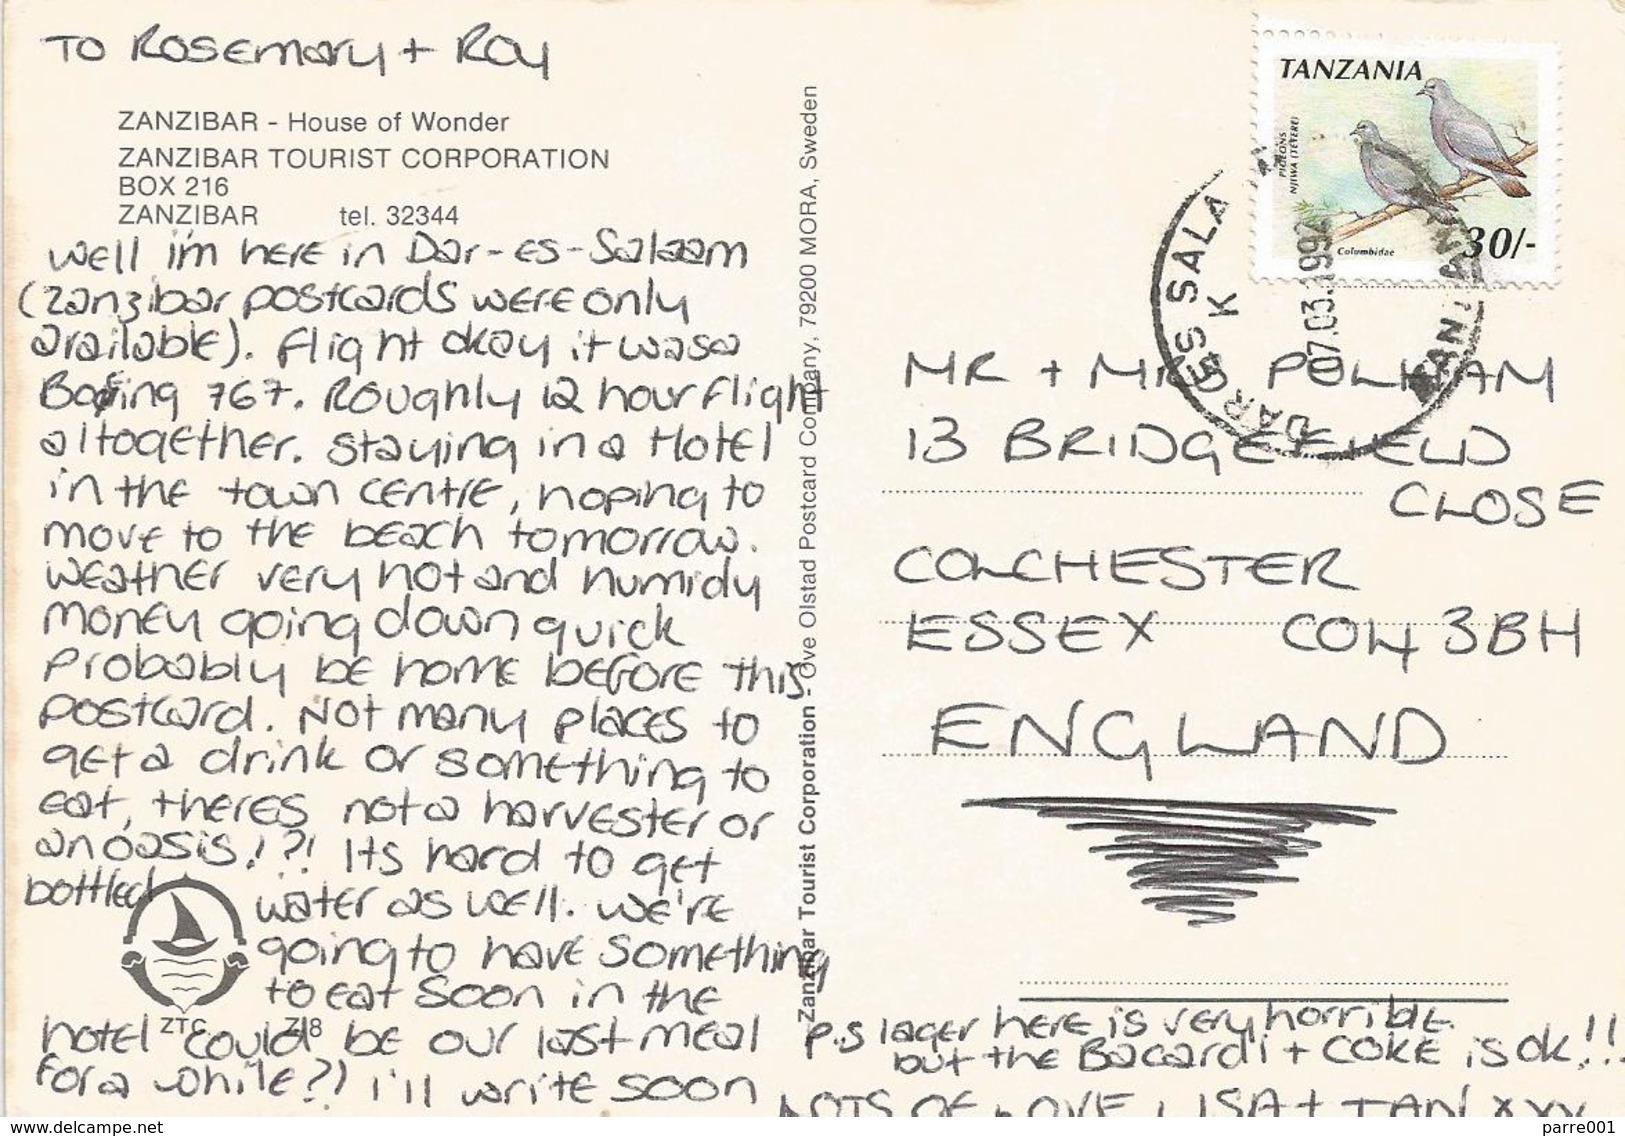 To Rosemary + Roy
ZANZIBAR - House of Wonder
ZANZIBAR TOURIST CORPORATION
BOX 216
ZANZIBAR tel. 32344
Well I'm here in Dar-es-Salaam
(Zanzibar postcards were only
available). Flight okay it was a
Boeing 767. Roughly 12 hour flight
altogether. Staying in a Hotel
in the town centre, hoping to
move to the beach tomorrow.
Weather very hot and humidy
money going down quick
Probably be home before this
postcard. Not many places to
get a drink or something to
eat, theres not a harvester or
an oasis!?! Its hard to get
bottled water as well. We're
going to have something
to eat soon in the
hotel could be our last meal
for a while?! I'll write soon
ZTC Z18
Zanzibar Tourist Corporation - Ove Olstad Postcard Company, 79200 MORA, Sweden
TANZANIA
PIGEONS
NJIWA (TETERE)
Columbidae
30/-
DAR ES SALA
K
07.03.1992
TANZAN
MR + MRS POLHAM
13 BRIDGEFIELD
CLOSE
COLCHESTER
ESSEX CO4 3BH
ENGLAND
P.S lager here is very horrible
but the Bacardi + COKE is ok!!!
LOTS OF LOVE LISA + IAN XXX
www.delcampe.net
parre001